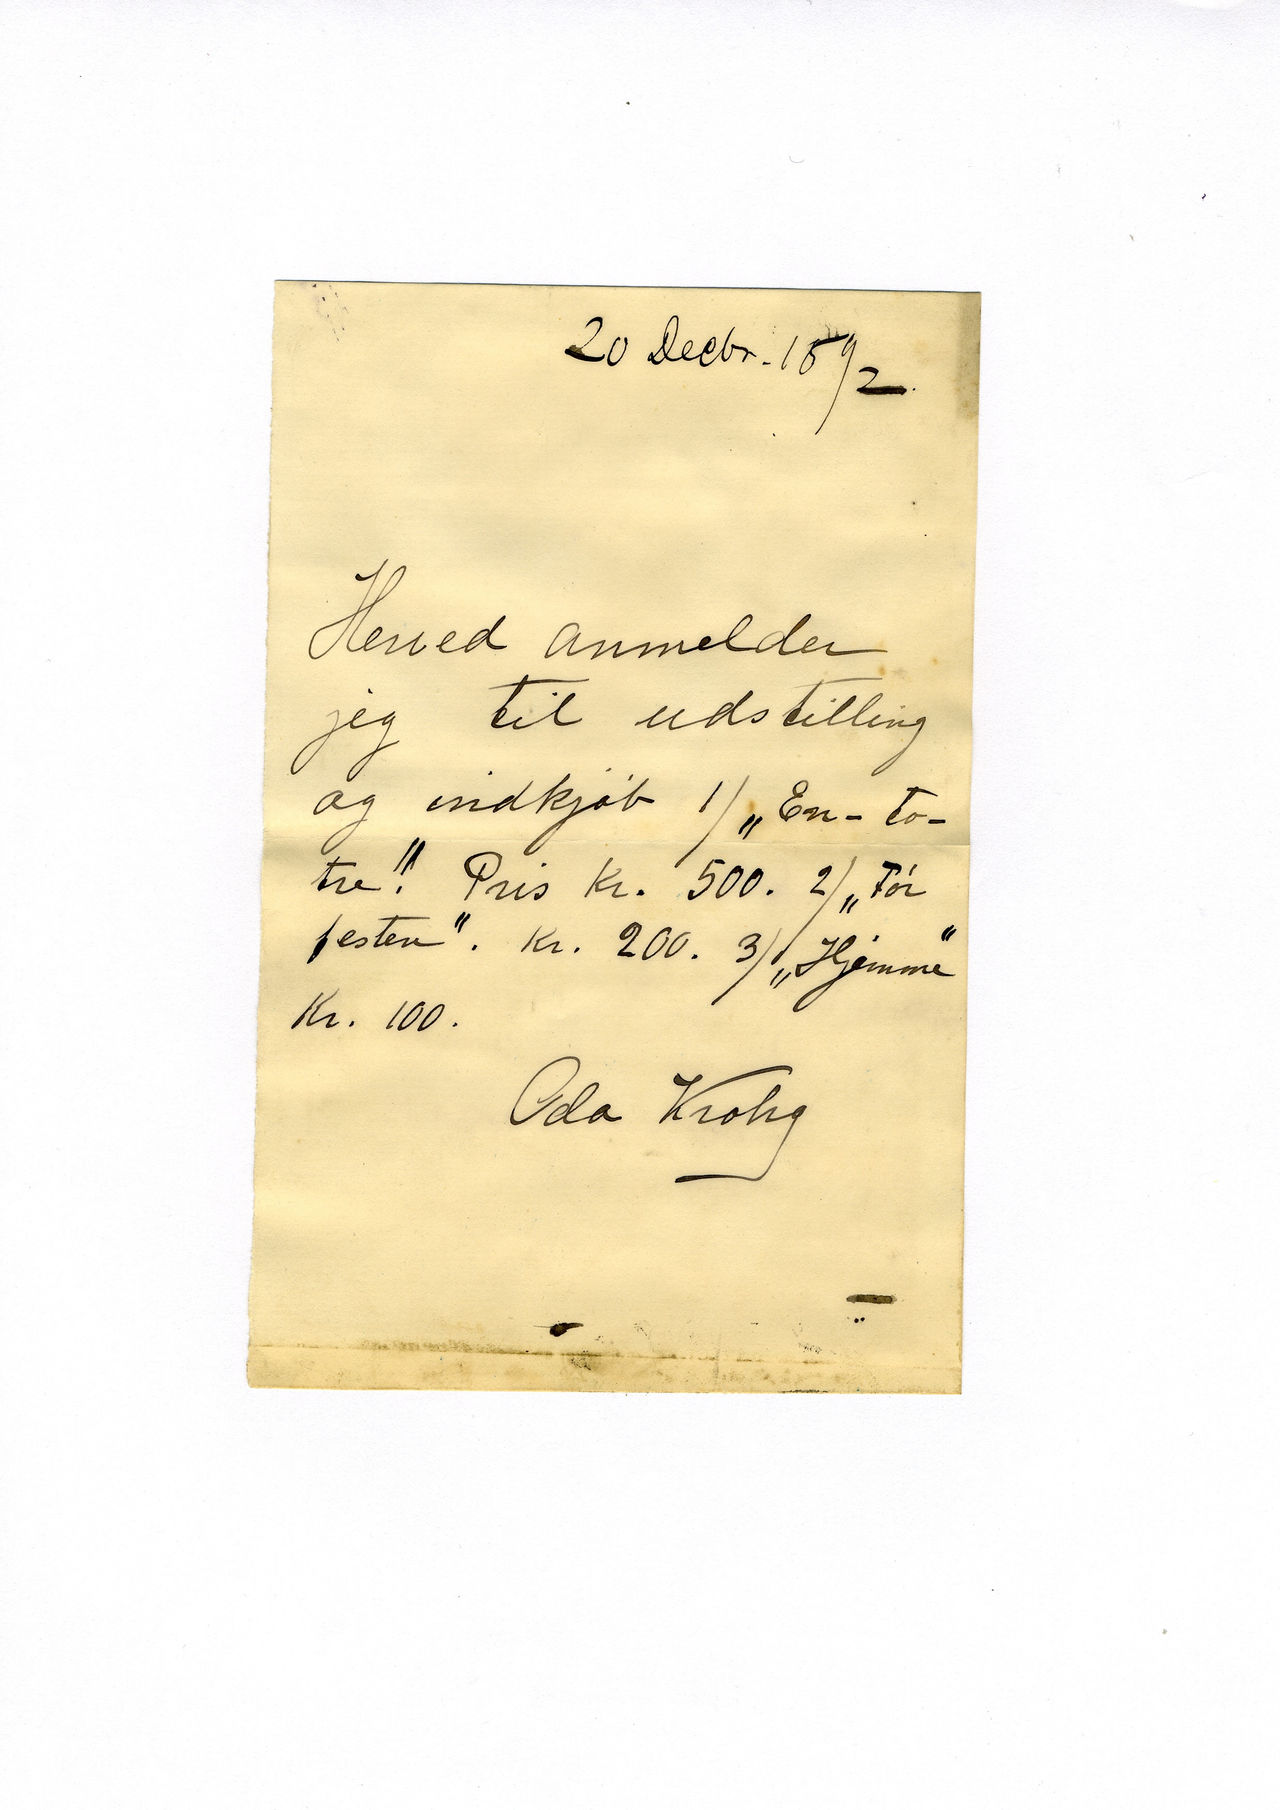 20 Decbr. 1892.
Herved anmelder
jeg til udstilling
og indkjøb 1/ „En-to-
tre!" Pris Kr. 500. 2/ „Før
festen". Kr. 200. 3/ „Hjemme"
Kr. 100.
Oda Krohg